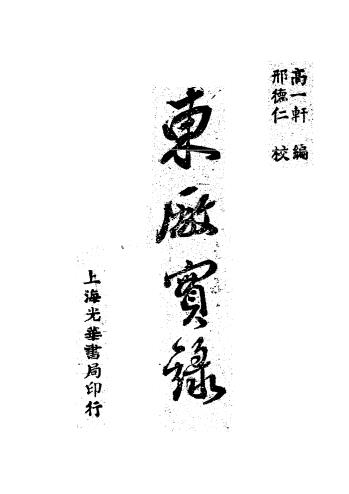 高一軒 編
邢德仁 校
東厰實錄
上海光華書局印行